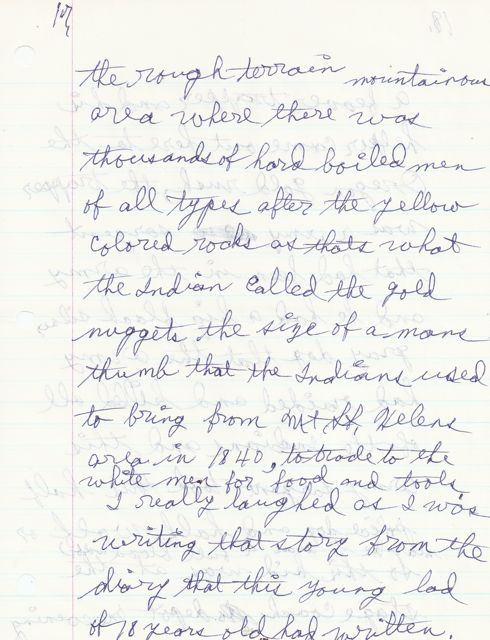 17
the rough terrain mountainous
area where there was
thousands of hard boiled men
of all types after the yellow
colored rocks as thats what
the Indian called the gold
nuggets the size of a mans
thumb that the Indians used
to bring from Mt St, Helens
area in 1840, to trade to the
white men for food and tools,
I really laughed as I was
writing that story from the
diary that this young lad
of 18 years old had written.